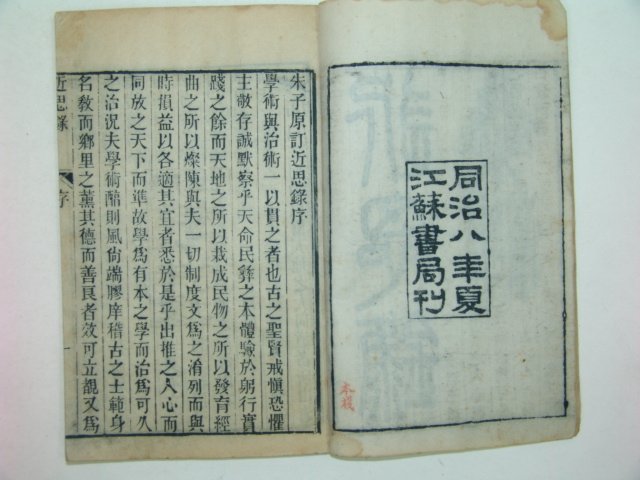 同治八年夏
江蘇書局刊
本衙
朱子原訂近思錄序
學術與治術一以貫之者也古之聖賢戒愼恐懼
主敬存誠默察乎天命民彝之本體驗於躬行實
踐之餘而天地之所以裁成民物之所以發育經
曲之所以燦陳與夫一切制度文爲之淆列而與
時損益以各適其宜者悉於是乎出推之人心而
同放之天下而準故學爲有本之學而治爲可久
之治況夫學術醇則風尙端膠庠稽古之士範身
名敎而鄉里之薰其德而善良者效可立覩又爲
近思錄
序
一